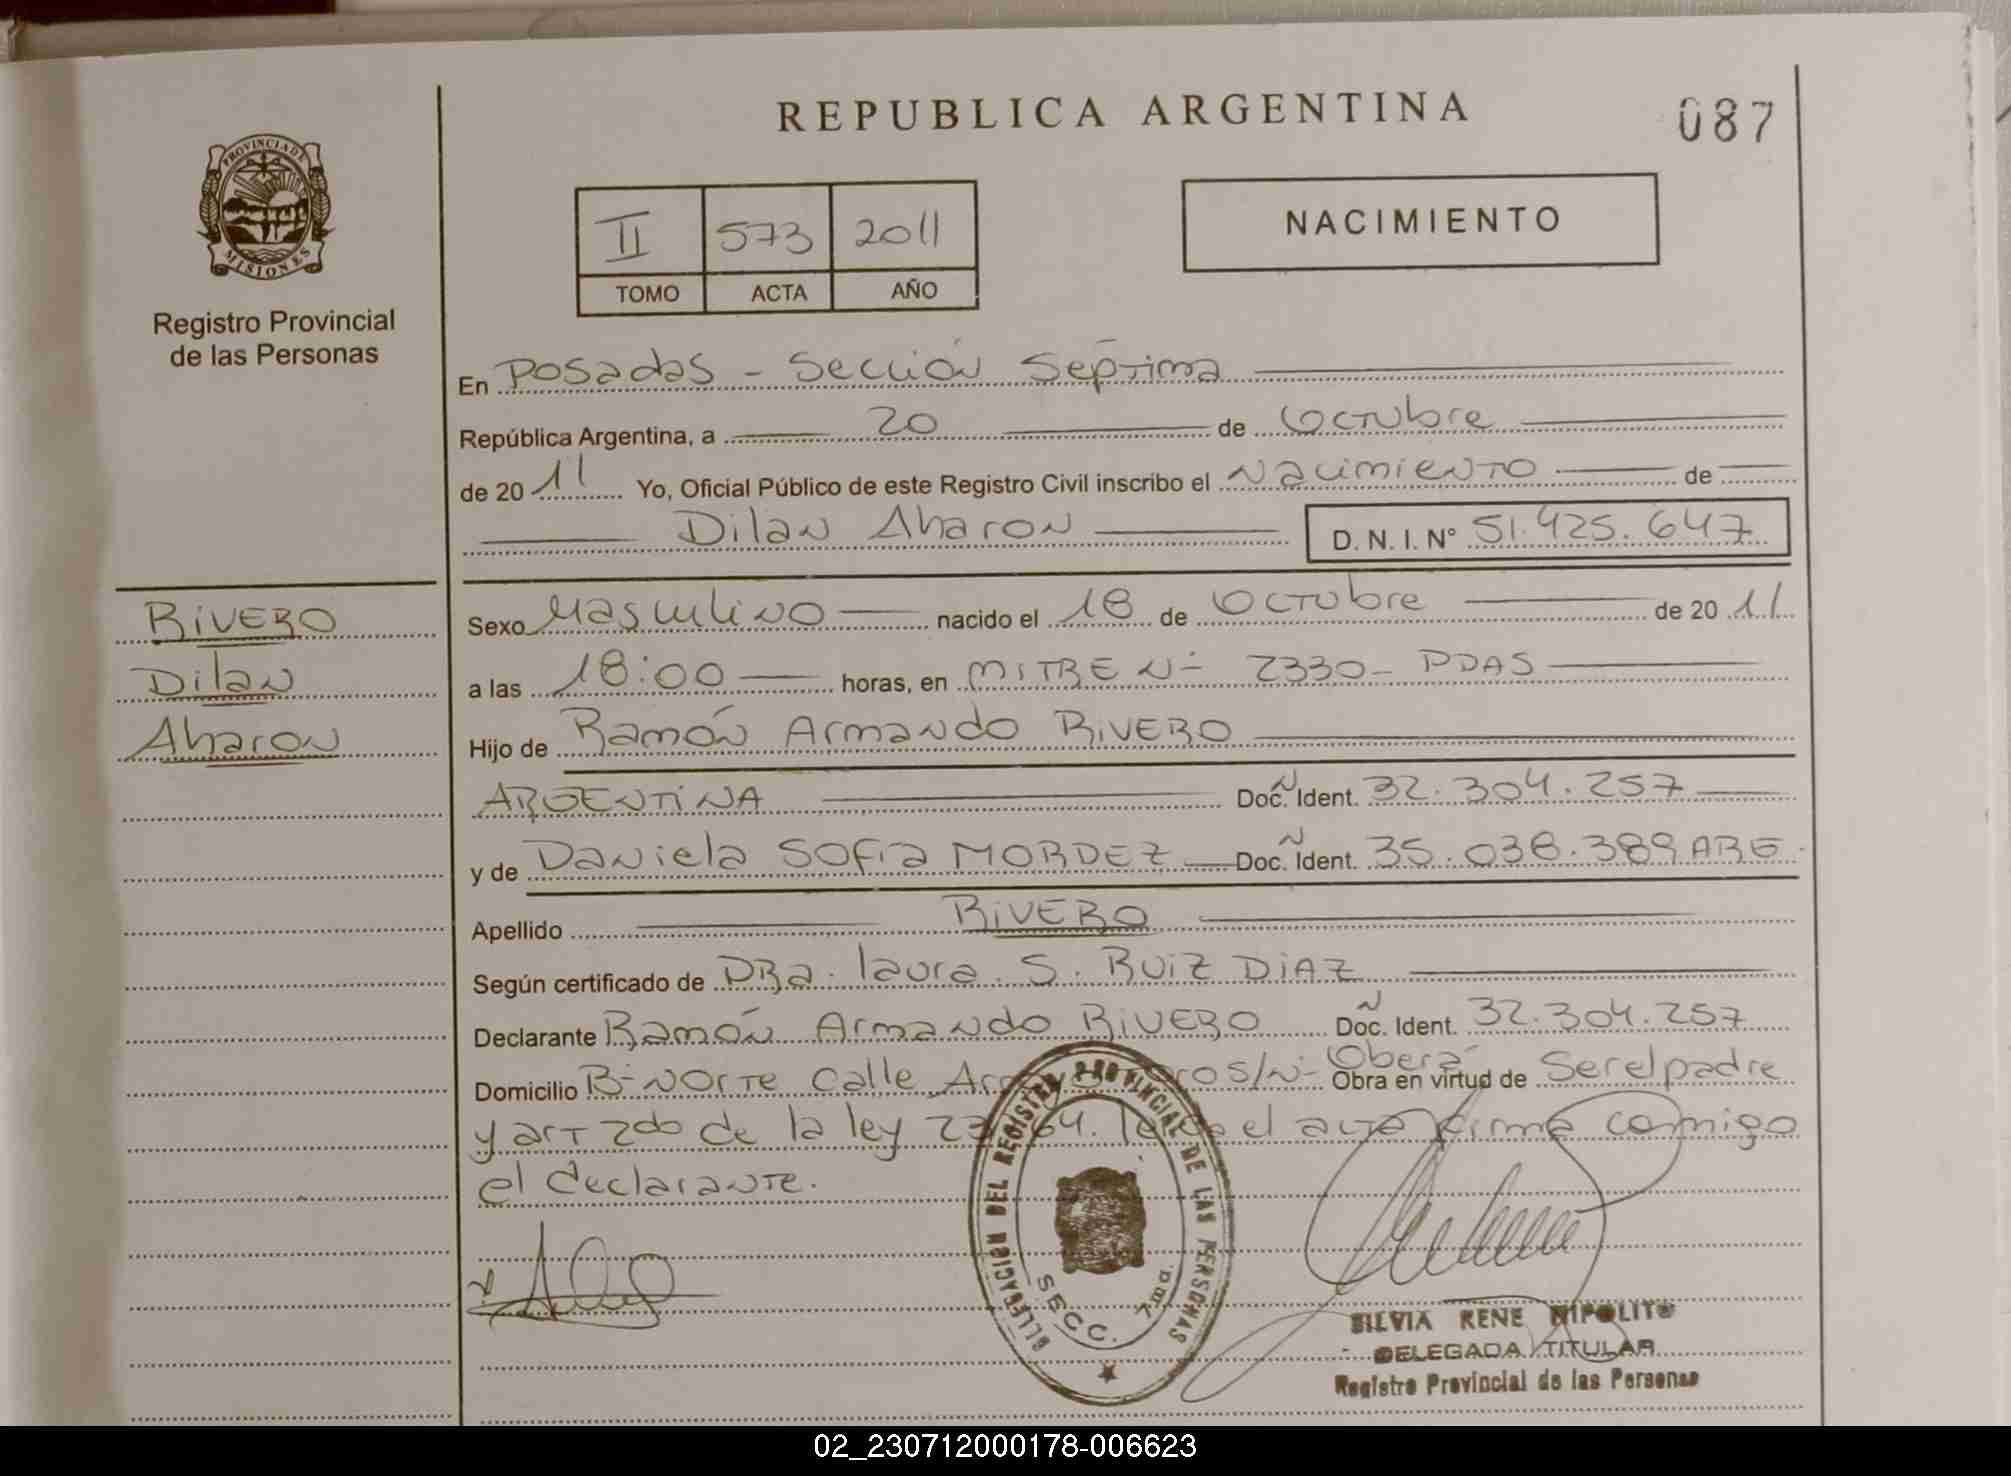 REPUBLICA ARGENTINA
087
PROVINCIA DE
MISIONES
Registro Provincial
de las Personas
II 573 2011
TOMO ACTA AÑO
NACIMIENTO
En Posadas - Sección Séptima
República Argentina, a 20 de Octubre
de 20 11 Yo, Oficial Público de este Registro Civil inscribo el Nacimiento de
Dilan Aharon D.N.I. N° 51.425.647
RIVERO
Dilan
Aharon
Sexo Masculino nacido el 18 de Octubre de 20 11
a las 18:00 horas, en MITRE N- 2330- PDAS
Hijo de Ramón Armando RIVERO
ARGENTINA Doc. Ident. 32.304.257
y de Daniela Sofia MORDEZ Doc. Ident. 35.038.389 ARG.
Apellido RIVERO
Según certificado de DRa. laura. S. RUIZ DIAZ
Declarante Ramón Armando RIVERO Doc. Ident. 32.304.257
Domicilio B- Norte Calle S/N- Oberá Obra en virtud de Serelpadre
y art 2do de la ley el acta firma comigo
el declarante.
DELEGACION DEL REGISTRO PROVINCIAL DE LAS PERSONAS
SECC. 7ma.
SILVIA RENE HIPOLITO
DELEGADA TITULAR
Registro Provincial de las Personas
02_230712000178-006623